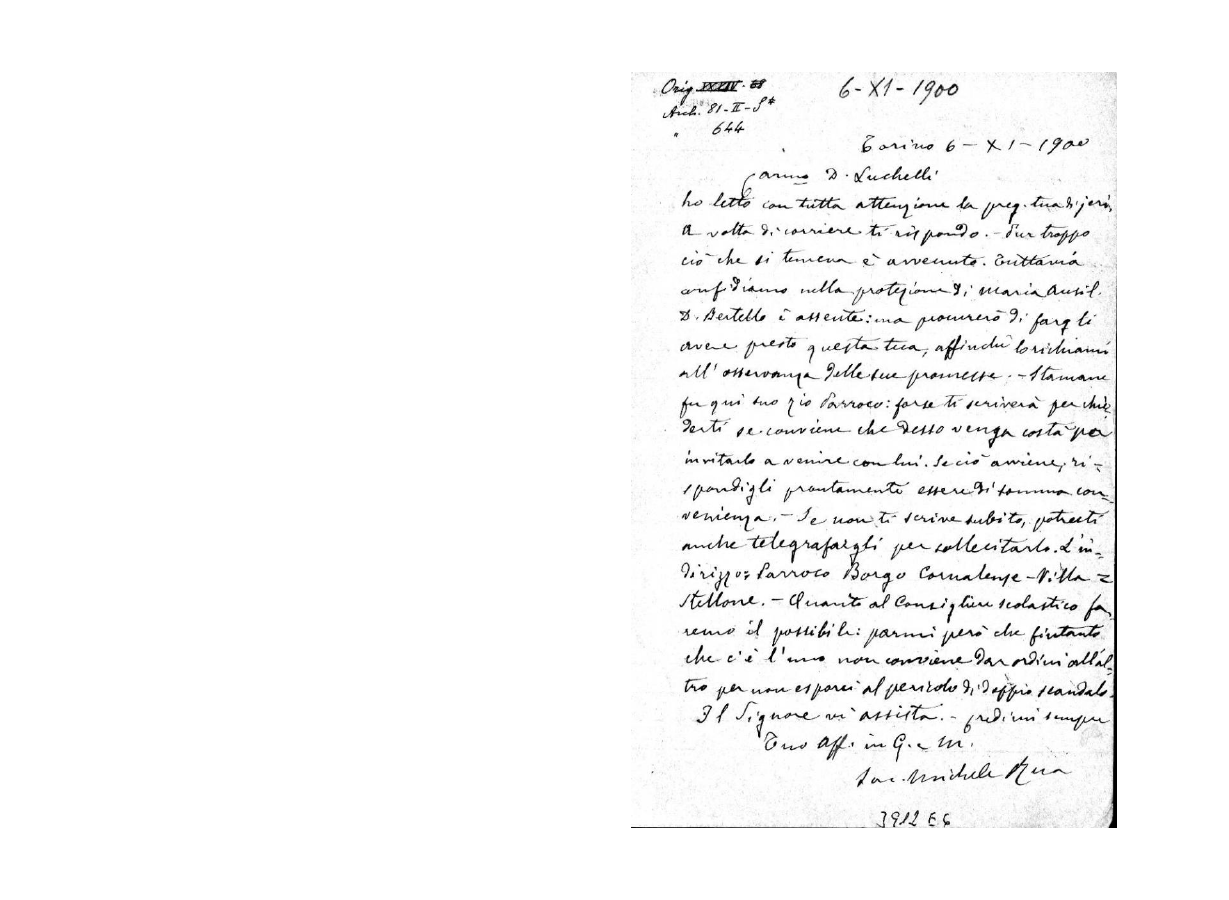 Orig. XXXIV · 88
Arch. 81-II-S*
" 644
6-XI-1900
Torino 6-XI-1900
Carmo D. Luchelli
ho letto con tutta attenzione la preg. tua di jeri.
A volta di corriere ti rispondo. - Pur troppo
ciò che si temeva è avvenuto. Tuttavia
confidiamo nella protezione di Maria Ausil.
D. Bertello è assente: ma procurerò di fargli
avere presto questa tua, affinchè lo richiami
all'osservanza delle sue promesse. - Stamane
fu qui suo zio Parroco: forse ti scriverà per chie=
derti se conviene che desso venga costà per
invitarlo a venire con lui. Se ciò avviene, ri=
spondigli prontamente essere di somma con=
venienza. - Se non ti scrive subito, potresti
anche telegrafargli per sollecitarlo. L'in=
dirizzo: Parroco Borgo Cornalense - Villa =
Stellone. - Quanto al Consigliere scolastico fa
remo il possibile: parmi però che fintanto
che c'è l'uno non conviene dar ordini all'al=
tro per non esporci al pericolo di doppio scandalo.
Il Signore vi assista. - Credimi sempre
Tuo Aff. in G. e M.
Sac. Michele Rua
3912 E6